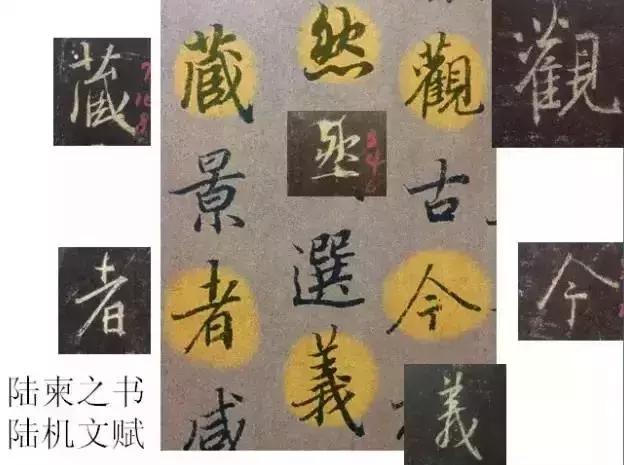 觀古今
然選義
藏景者咸
觀
今
義
然
藏
者
陆柬之书
陆机文赋